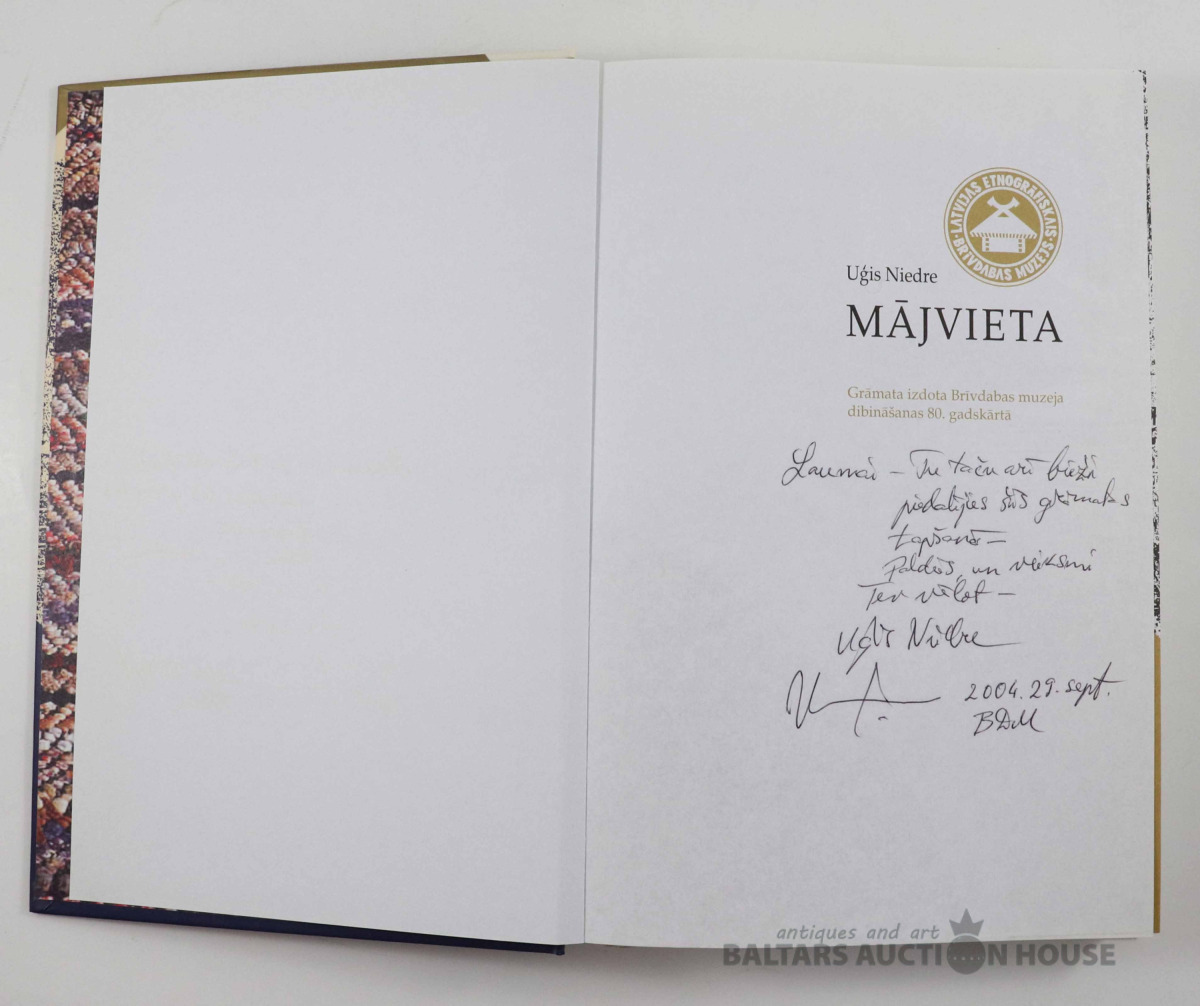 · LATVIJAS ETNOGRĀFISKAIS ·
BRĪVDABAS MUZEJS
Uģis Niedre
MĀJVIETA
Grāmata izdota Brīvdabas muzeja
dibināšanas 80. gadskārtā
Laumai – Tu taču arī bieži
piedalījies šīs grāmatas
tapšanā –
Paldies, un veiksmi
Tev vēlot –
Uģis Niedre
2004. 29. sept.
BDM
antiques and art
BALTARS AUCTION HOUSE